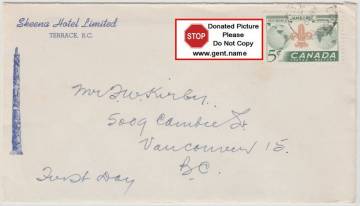 Skeena Hotel Limited
TERRACE, B.C.
STOP
Donated Picture
Please
Do Not Copy
www.gent.name
JAMBOREE
5¢ CANADA
Mr F. W. Kirby.
5009 Cambie St
Vancouver 15.
B.C.
First Day